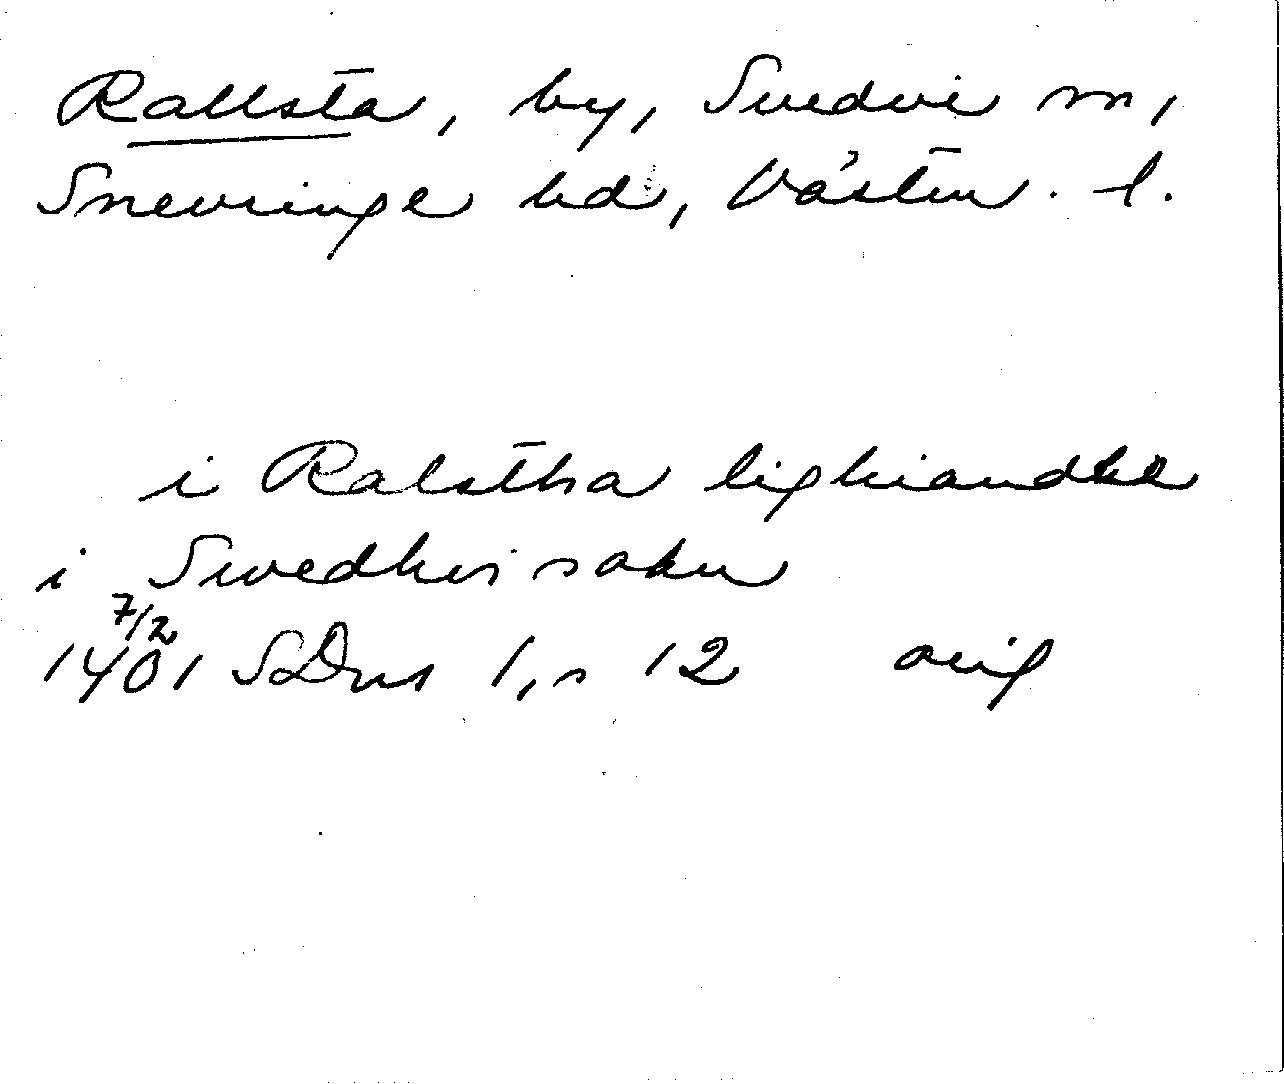 Rallsta, by, Svedvi sn,
Snevringe hd, Västm. l.
i Ralstha lighiandhe
i Swedhvi sokn
7/2
1401 SDns 1, s 12 orig